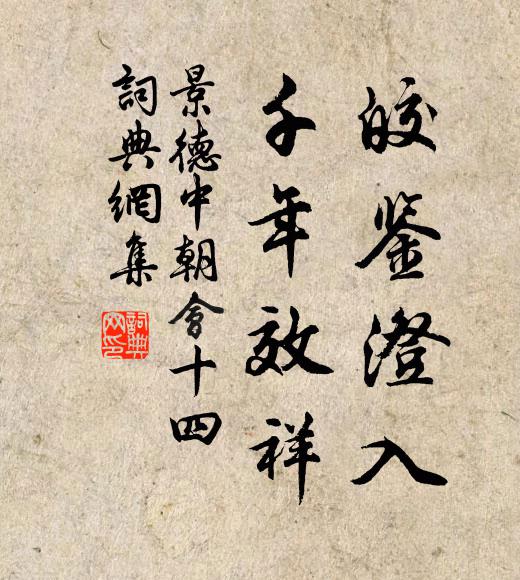 皎鉴澄入
千年效祥
景德中朝會十四
詞典網集
詞典網印